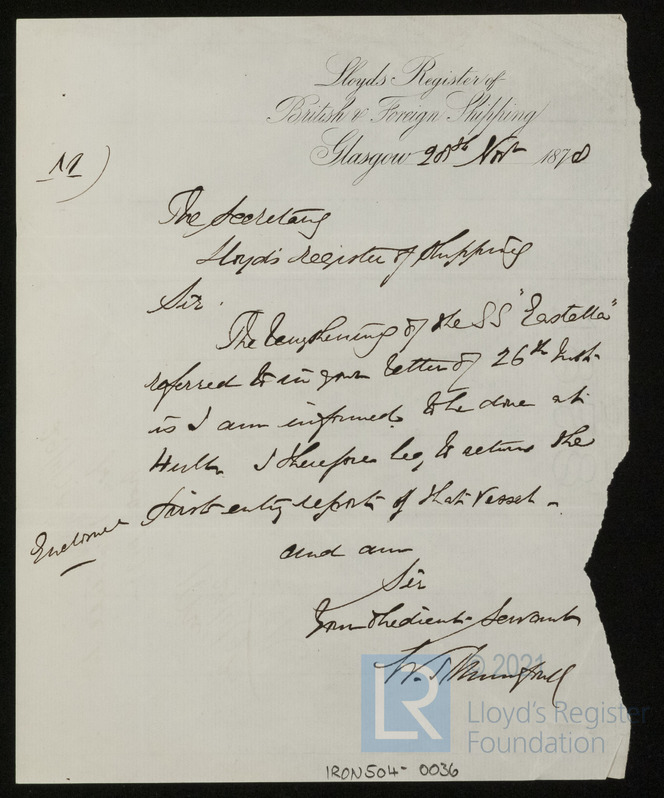 Lloyds Register of
British & Foreign Shipping
Glasgow 28th Novr 1878
The Secretary
Lloyd's Register of Shipping
Sir
The lengthening of the SS "Eastella"
referred to in your letter of 26th Inst.
is I am informed to be done at
Hull. I therefore beg to return the
first entry reports of that vessel.
Enclosure
and am
Sir
Your obedient Servant
W.
© 2021
LR
Lloyd's Register
Foundation
IRON504-0036